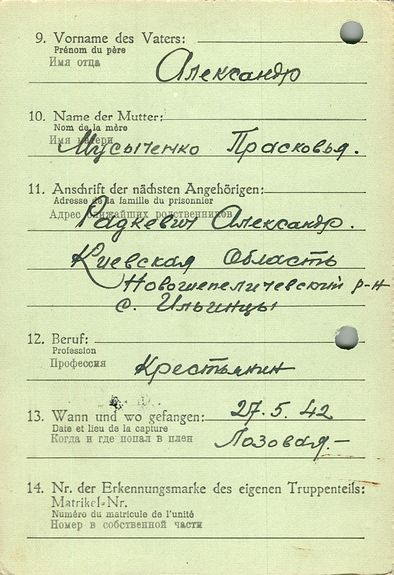 9. Vorname des Vaters:
Prénom du père
Имя отца
Александр
10. Name der Mutter:
Nom de la mère
Имя матери
Мусыченко Прасковья.
11. Anschrift der nächsten Angehörigen:
Adresse de la famille du prisonnier
Адрес ближайших родственников
Радкевич Александр.
Киевская Область
Новошепеличевский р-н
с. Ильинцы
12. Beruf:
Profession
Профессия
Крестьянин
13. Wann und wo gefangen: 27.5.42
Date et lieu de la capture
Когда и где попал в плен
Лозовая.-
14. Nr. der Erkennungsmarke des eigenen Truppenteils:
Matrikel-Nr.
Numéro du matricule de l'unité
Номер в собственной части